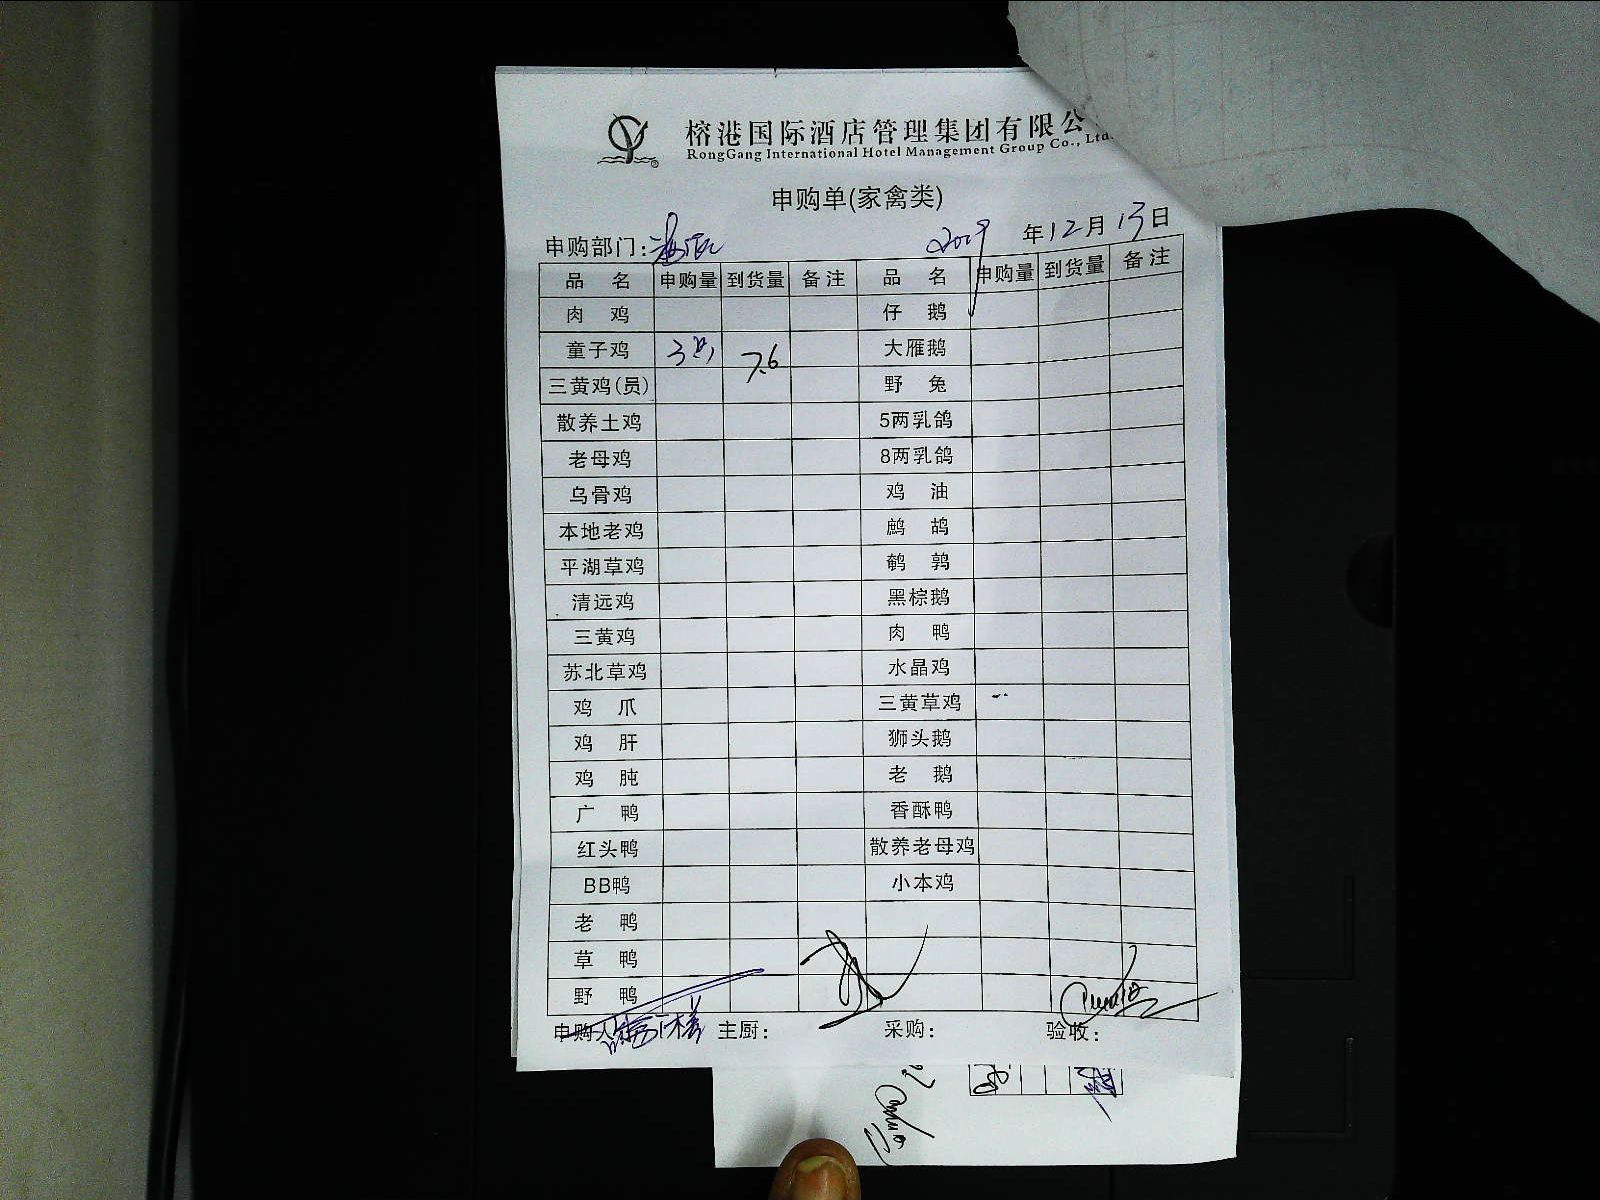 榕港国际酒店管理集团有限公
RongGang International Hotel Management Group Co., Ltd.
申购单(家禽类)
申购部门: 2019 年12月13日
品 名 申购量 到货量 备注 品 名 申购量 到货量 备注
肉 鸡 仔 鹅
童子鸡 3 7.6 大雁鹅
三黄鸡(员) 野 兔
散养土鸡 5两乳鸽
老母鸡 8两乳鸽
乌骨鸡 鸡 油
本地老鸡 鹧 鸪
平湖草鸡 鹌 鹑
清远鸡 黑棕鹅
三黄鸡 肉 鸭
苏北草鸡 水晶鸡
鸡 爪 三黄草鸡
鸡 肝 狮头鹅
鸡 肫 老 鹅
广 鸭 香酥鸭
红头鸭 散养老母鸡
BB鸭 小本鸡
老 鸭
草 鸭
野 鸭
申购人 主厨: 采购: 验收: